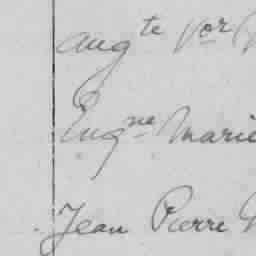 Augte Vor
Eugne Marie
Jean Pierre